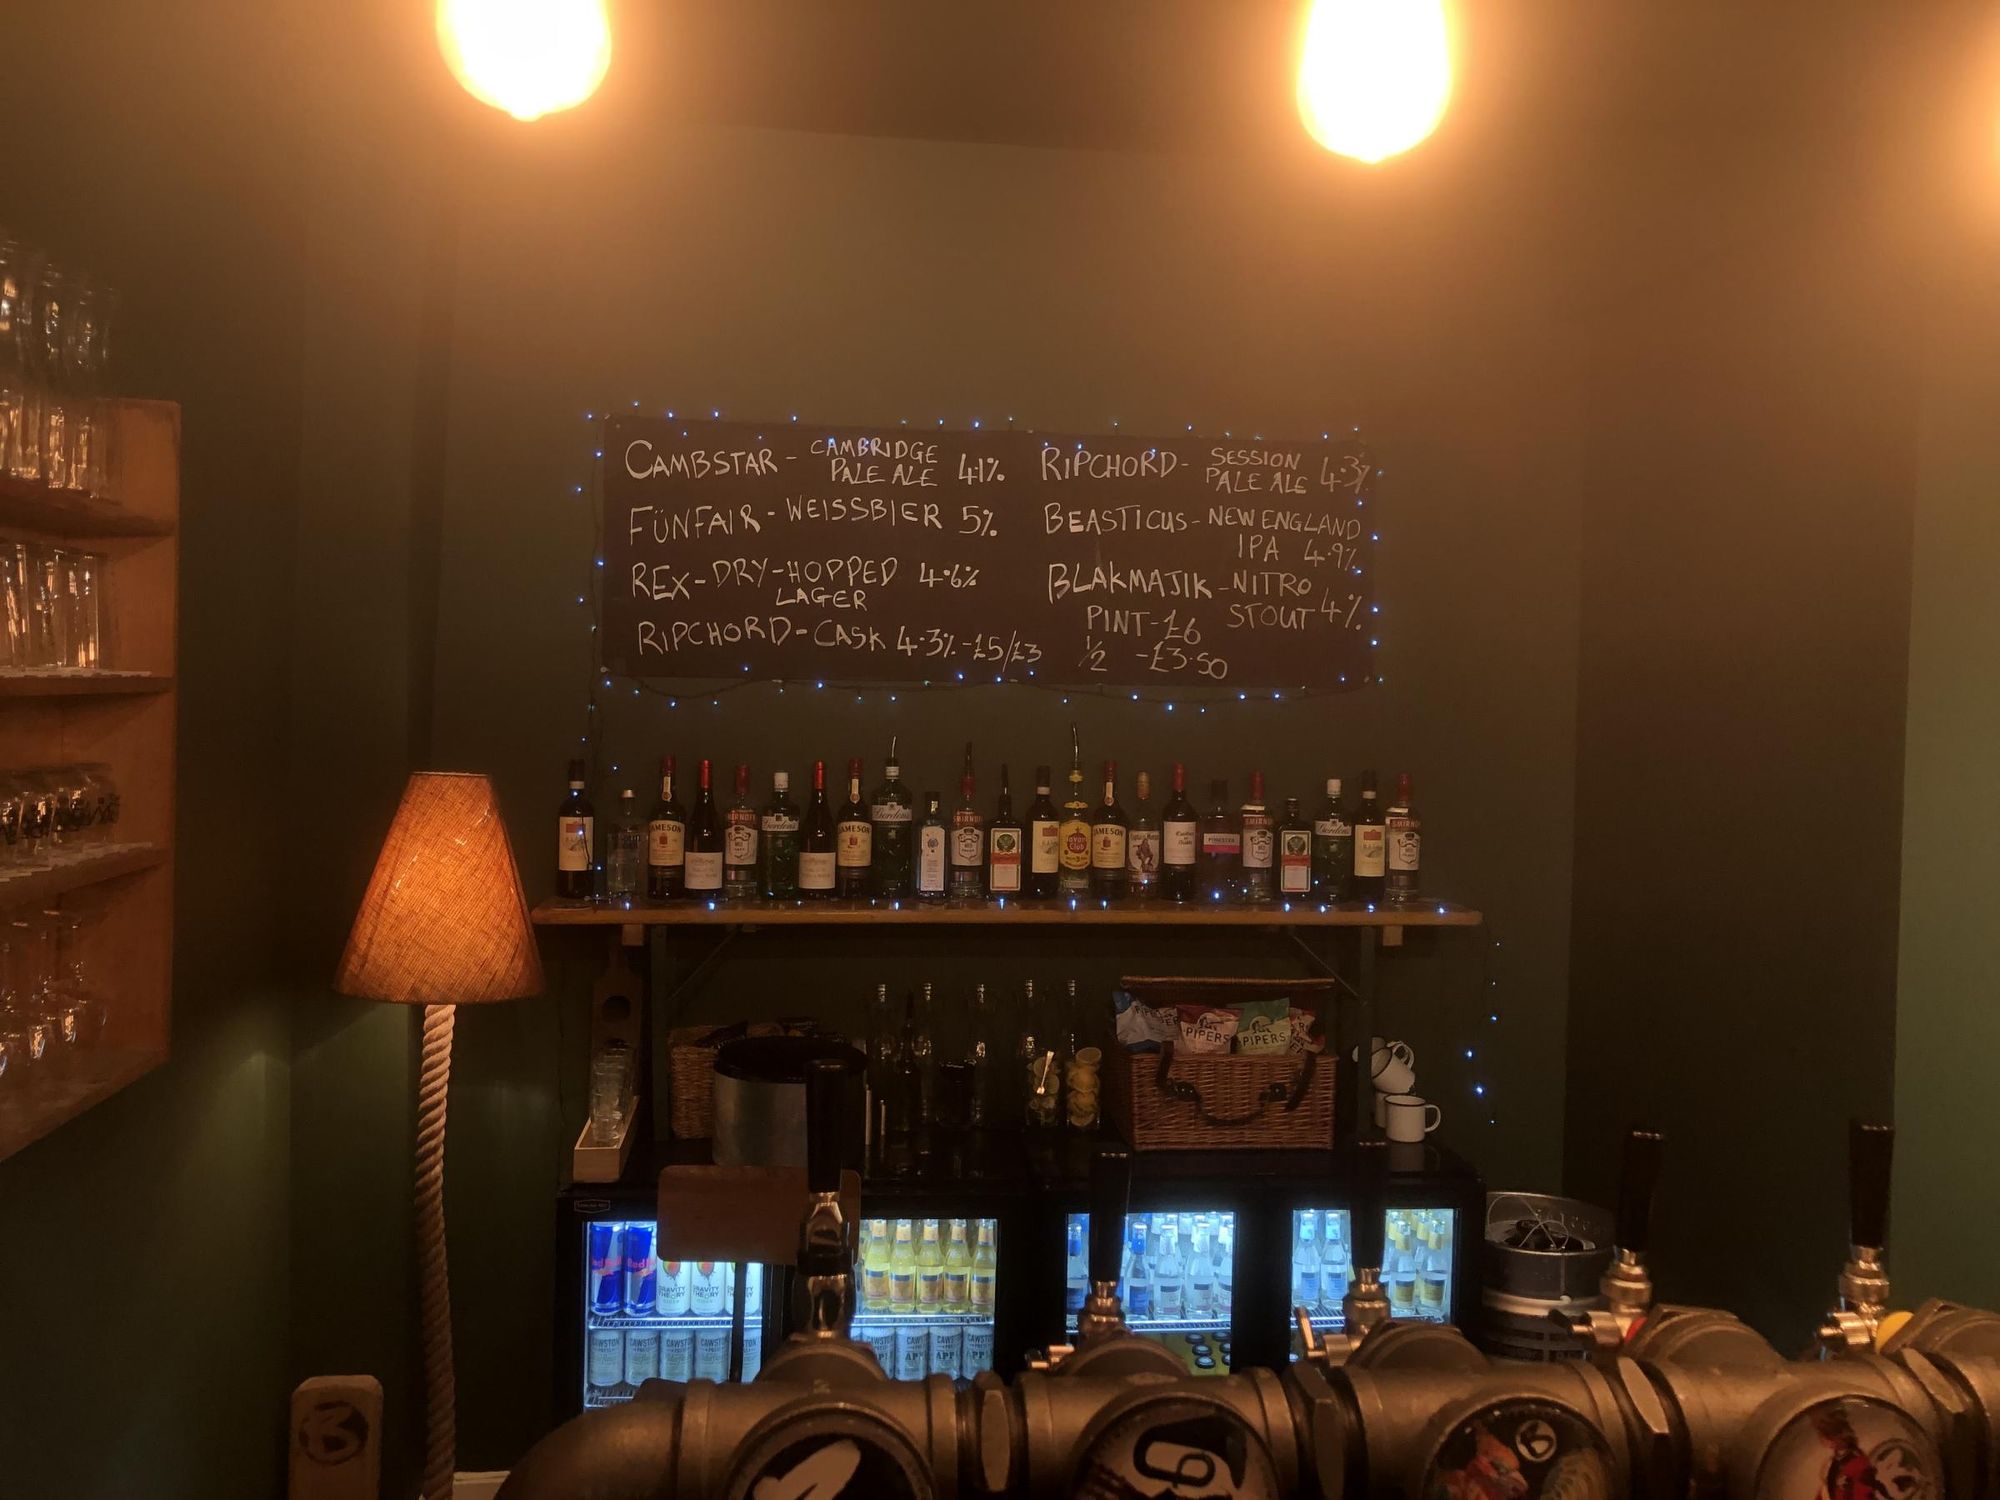 CAMBSTAR - CAMBRIDGE PALE ALE 4.1%
FÜNFAIR - WEISSBIER 5%
REX - DRY-HOPPED LAGER 4.6%
RIPCHORD - CASK 4.3% - £5/£3
RIPCHORD - SESSION PALE ALE 4.3%
BEASTICUS - NEW ENGLAND IPA 4.9%
BLAKMAJIK - NITRO STOUT 4%
PINT - £6
1/2 - £3.50
JAMESON
SMIRNOFF
Gordon's
JAMESON
Gordon's
SMIRNOFF
Havana Club
JAMESON
SMIRNOFF
Gordon's
SMIRNOFF
PIPERS
PIPERS
Red Bull
GRAVITY THEORY
CIDER
GRAVITY THEORY
CAWSTON PRESS
CAWSTON PRESS
CAWSTON PRESS